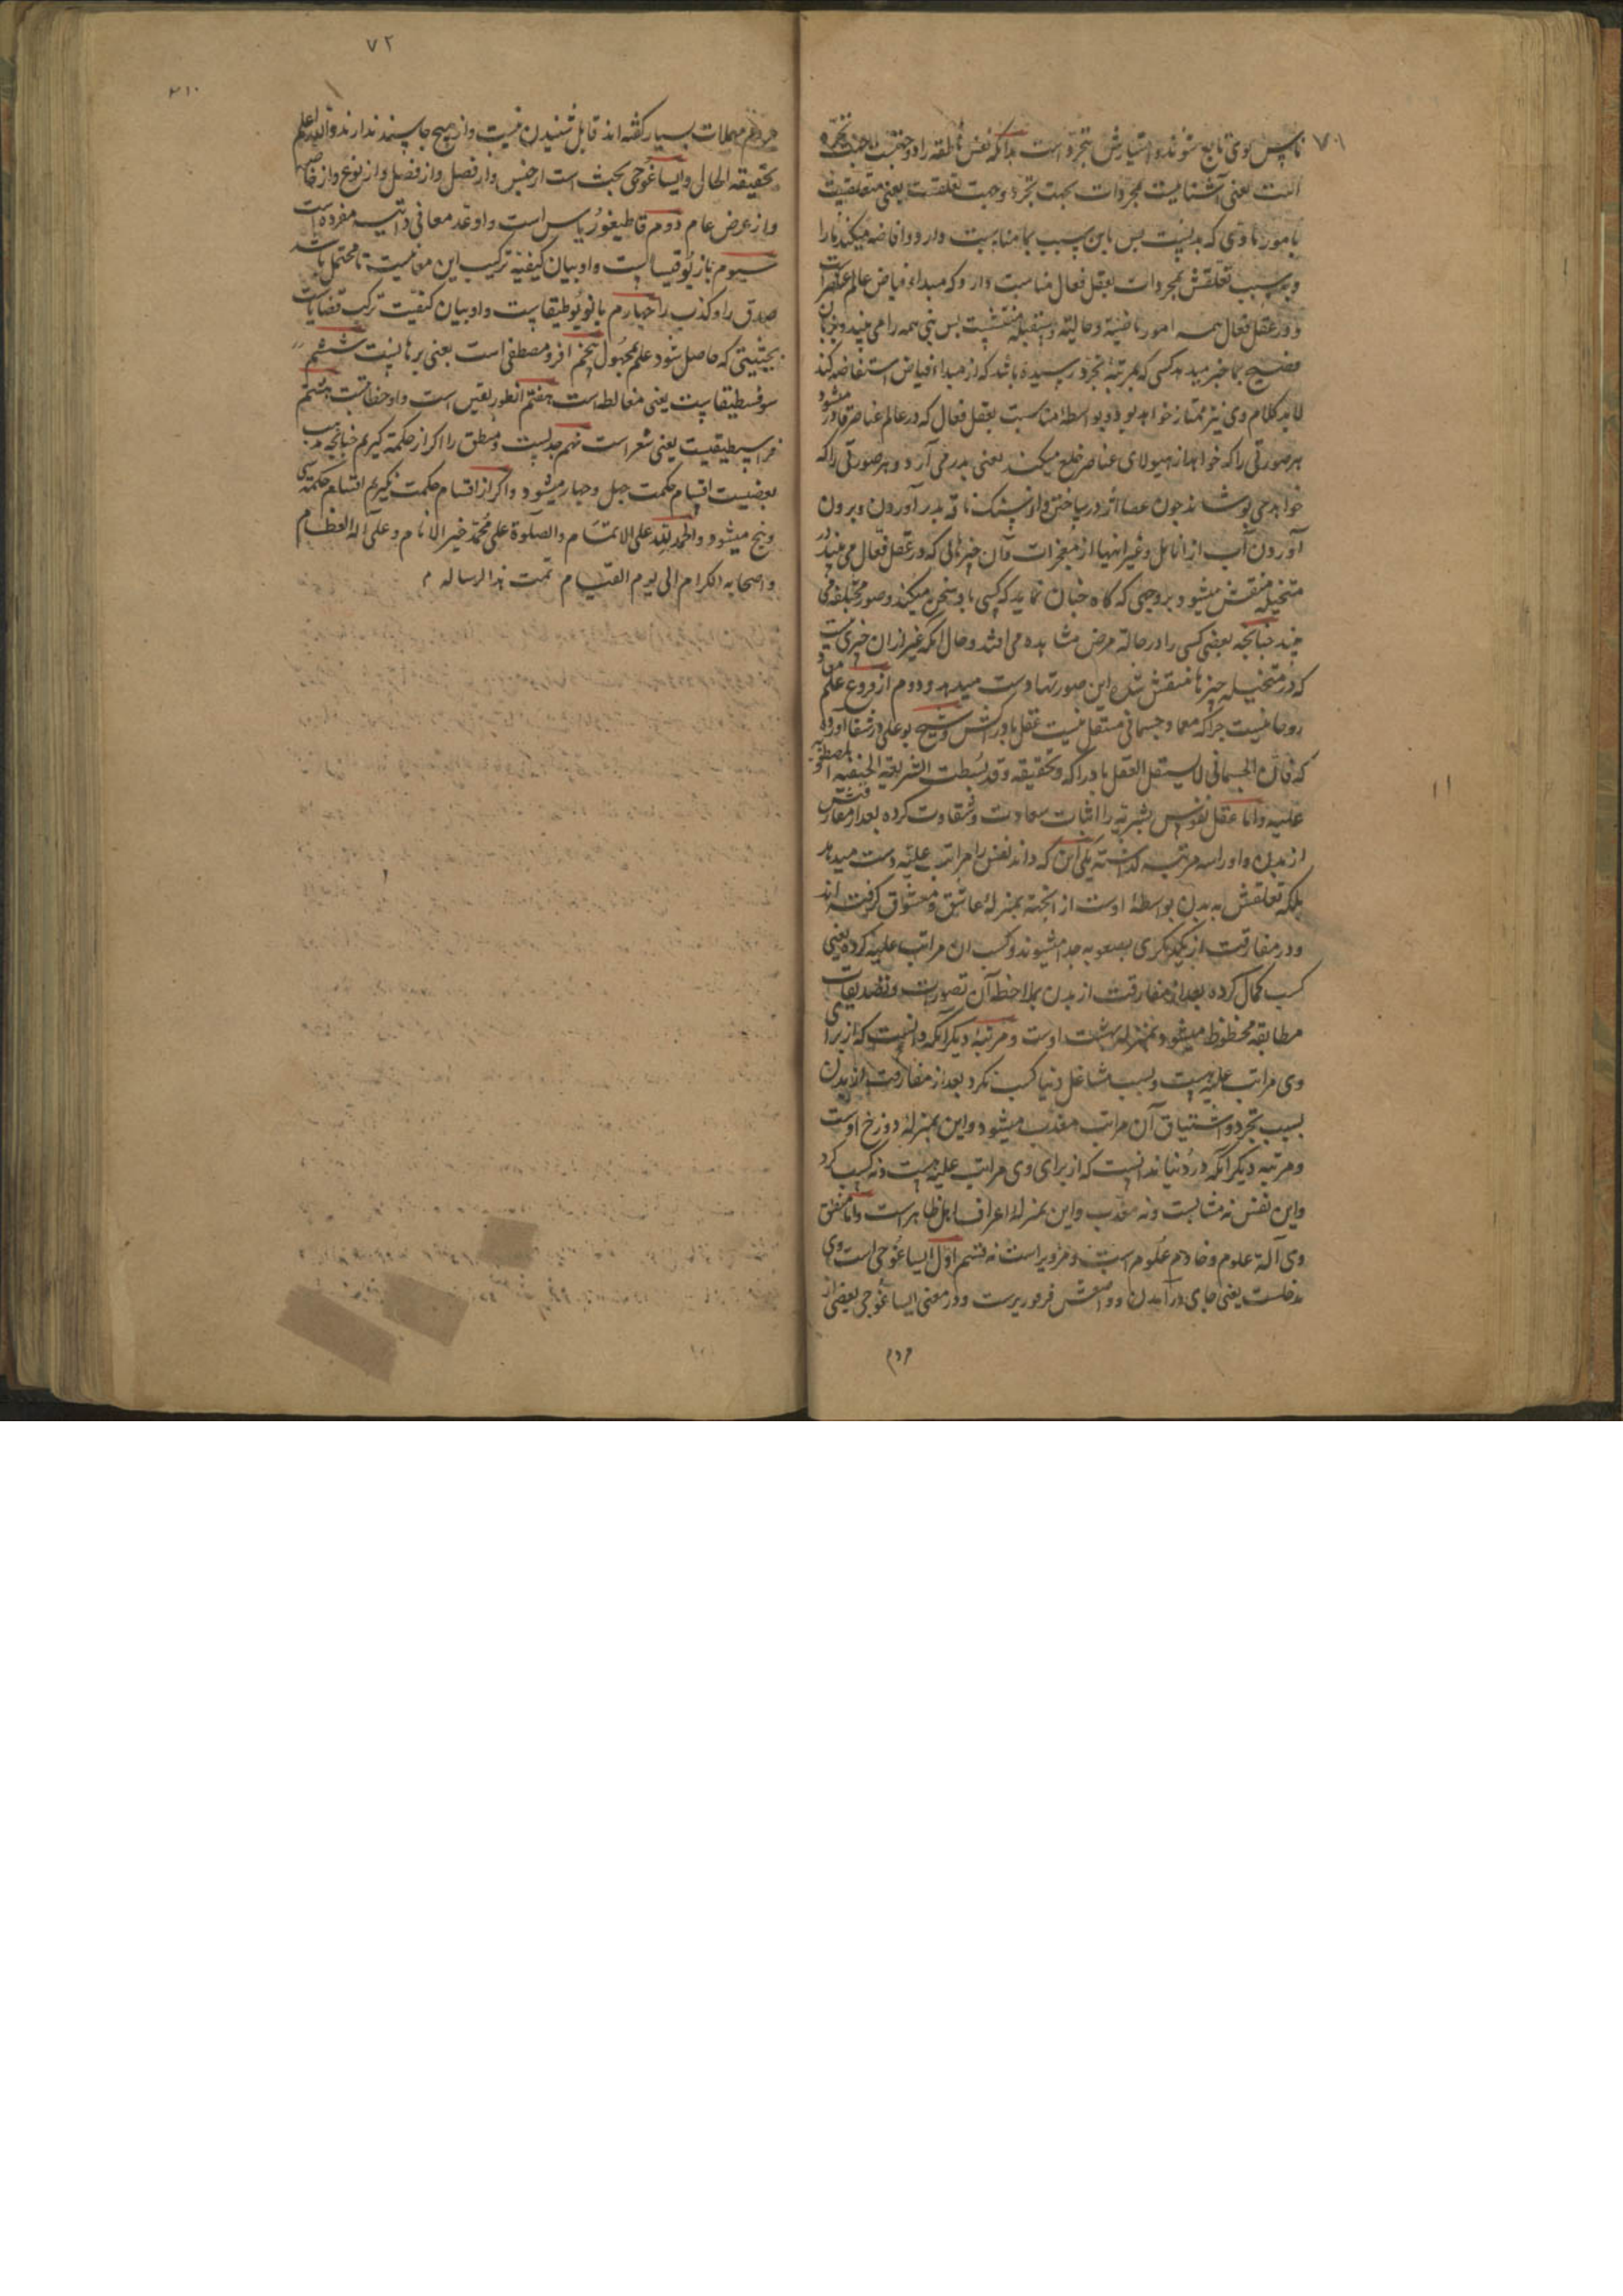 ٧٠١
ناس بوی تابع شوند و امتیازش بتجرد است بدانکه نفس ناطقه را دو جهتست
یعنی آشنایست بمجردات بجهت تجرد و جهت تعلقست یعنی متعلقست
بامور مادی که بدنیست پس باین سبب بما مناسبت دارد و افاضه میکند ما را
و بسبب تعلقش بمجردات بعقل فعال مناسبت دارد که مبداء فیاض عالم عناصر است
و در عقل فعال همه امور ماضیة و حالیة و مستقبلة منقشست پس نبی همه را می بیند و بزبان
فصیح بما خبر میدهد کسی که بمرتبهٔ تجرد رسیده باشد که از مبداء فیاض استفاضه کند
لابد کلام وی نیز ممتاز خواهد بود و بواسطهٔ مناسبت بعقل فعال که در عالم عناصر قادر میشود
هر صورتی را که خواهد از هیولای عناصر خلع میکند یعنی بدر می آرد و هر صورتی را که
خواهد می پوشاند چون عصا اژدر ساختن و از سنگ ناقه بدر آوردن و برون
آوردن آب از انامل و غیر اینها از معجزات و آن چیزهائی که در عقل فعال می بیند در
متخیله منقش میشود بروجهی که گاه چنان نماید که کسی با و سخن میکند و صور مختلفه می
بیند چنانچه بعضی کسی را در حالة مرض مشاهده می افتد و حال آنکه غیر از آن چیزی نیست
که در متخیله چیزها منتقش شده این صورتها دست میدهد و دوم از فروع علم معاد
روحانیست چرا که معاد جسمانی مستقل نیست عقل بادراکش و شیخ بوعلی در شفا آورده
که فان الجسمانی لا یستقل العقل بادراکه و تحقیقه و قد بسطت الشریعة الحنفیة المصطفویة
علیه و اما عقل نفوس بشریه را اثبات سعادت و شقاوت کرده بعد از مفارقتش
از بدن و او را سه مرتبه گذاشته یکی آن که داند نفس را مراتب علیه دست میدهد
بلکه تعلقش به بدن بواسطهٔ اوست از انجهة بمنزلهٔ عاشق و معشوق گرفته اند
و در مفارقت از یکدیگری بصعوبه جدا میشوند و کسب آن مراتب علیه کرده یعنی
کسب کمال کرده بعد از مفارقت از بدن بملاحظه آن تصورات و تصدیقات
مطابقه محظوظ میشود بمنزله بهشت اوست و مرتبهٔ دیگر آنکه دانست که از برای
وی مراتب علیه هست و بسبب مشاغل دنیا کسب نکرد بعد از مفارقت از بدن
بسبب تجرد و اشتیاق آن مراتب معذب میشود و این بمنزلهٔ دوزخ اوست
و مرتبه دیگر آنکه در دنیا ندانست که از برای وی مراتب علیه هست و نه کسب کرد
و این نفس نه مثابست و نه معذب و این بمنزلهٔ اعراف اهل ظاهر است و اما منطق
وی آلة علوم و خادم علوم است و مر ویراست نه قسم اول ایساغوجی است وی
مدخلست یعنی جای در آمدن و واضعش فرفوریرست و در معنی ایساغوجی بعضی از
مردم
٧٢
٢١٠
مردم مهملات بسیار گفته اند قابل شنیدن نیست و از هیچ جا سند ندارند و الله اعلم
بحقیقه الحال و ایساغوجی بحث است از جنس و از فصل و از فصل و از نوع و از خاصه
و از عرض عام دوم قاطیغوریاس است و او عد معانی ذاتیه مفرده است
سیوم باریوقیساست و او بیان کیفیة ترکیب این معانیست تا محتمل باشد
صدق را و کذب را چهارم بانولوطیقاست و او بیان کیفیت ترکب قضایاست
بحیثیتی که حاصل شود علم بمجهول پنجم افرومصطفی است یعنی برهانیست ششم
سوفسطیقاست یعنی مغالطه است هفتم انطوریقیس است و او خطابست هشتم
فراسطیقیست یعنی شعر است نهم جدلیست و منطق را اگر از حکمة گیریم چنانچه مذهب
بعضیست اقسام حکمت چهل و چهار میشود و اگر از اقسام حکمت نگیریم اقسام حکمة سی
و پنج میشود و الحمد لله علی الاتمام و الصلوة علی محمد خیر الانام و علی آله العظام
و اصحابه الکرام الی یوم القیام تمت هذا الرساله م